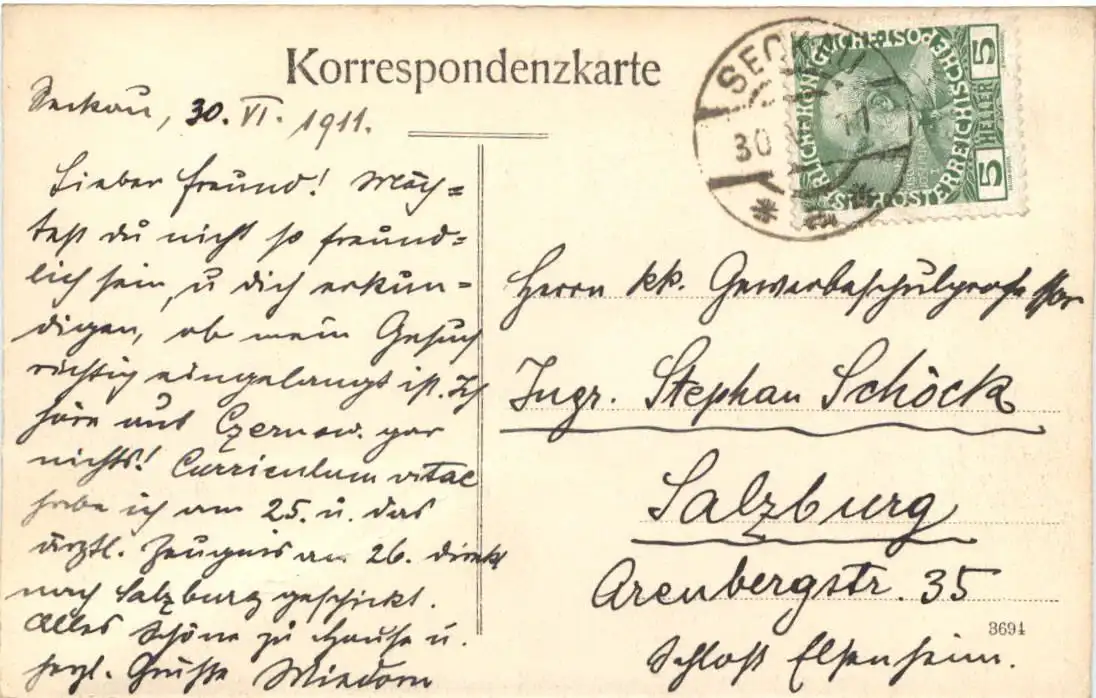 Korrespondenzkarte
Seckau, 30. VI. 1911.
Lieber Freund! Möch=
test du nicht so freund=
lich sein, u dich erkun=
digen, ob mein Gesuch
richtig eingelangt ist. Ich
höre aus Czernow. gar
nichts! Curriculum vitae
habe ich am 25. u. das
ärztl. Zeugnis am 26. direkt
nach Salzburg geschickt.
Alles Schöne zu Hause u.
herzl. Grüße
SECKAU
30
11
5 HELLER 5
Herrn kk. Gewerbeschulprofessor
Ingr. Stephan Schöck
Salzburg
Arenbergstr. 35
Schloß Elsenheim.
3694